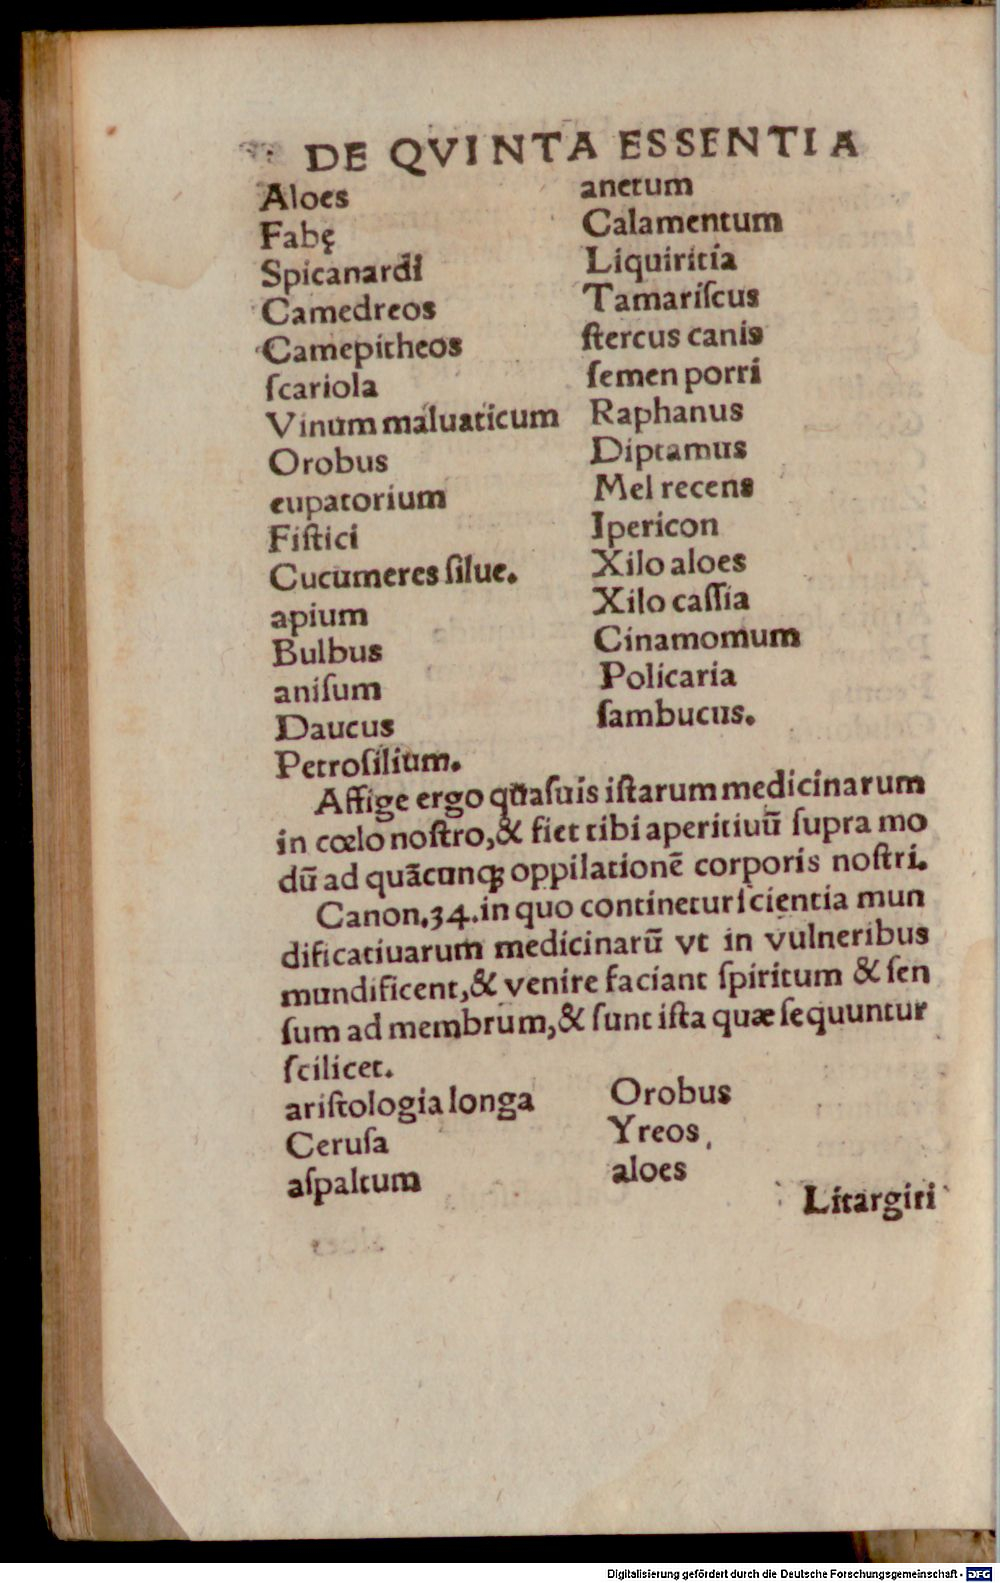 DE QVINTA ESSENTIA
Aloes
Fabę
Spicanardi
Camedreos
Camepitheos
ſcariola
Vinum maluaticum
Orobus
eupatorium
Fiſtici
Cucumeres ſilue.
apium
Bulbus
aniſum
Daucus
Petroſilium.
anetum
Calamentum
Liquiritia
Tamariſcus
ſtercus canis
ſemen porri
Raphanus
Diptamus
Mel recens
Ipericon
Xilo aloes
Xilo caſſia
Cinamomum
Policaria
ſambucus.
Affige ergo quaſuis iſtarum medicinarum
in cœlo noſtro, & fiet tibi aperitiuū ſupra mo
dū ad quãcunqꝫ oppilationē corporis noſtri.
Canon.34.in quo continetur ſcientia mun
dificatiuarum medicinarū vt in vulneribus
mundificent, & venire faciant ſpiritum & ſen
ſum ad membrum, & ſunt iſta quæ ſequuntur
ſcilicet.
ariſtologia longa
Ceruſa
aſpaltum
Orobus
Yreos
aloes
Litargiri
Digitalisierung gefördert durch die Deutsche Forschungsgemeinschaft - DFG